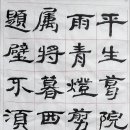 平生葛院
雨青燈剪
属將暮西
題壁不須